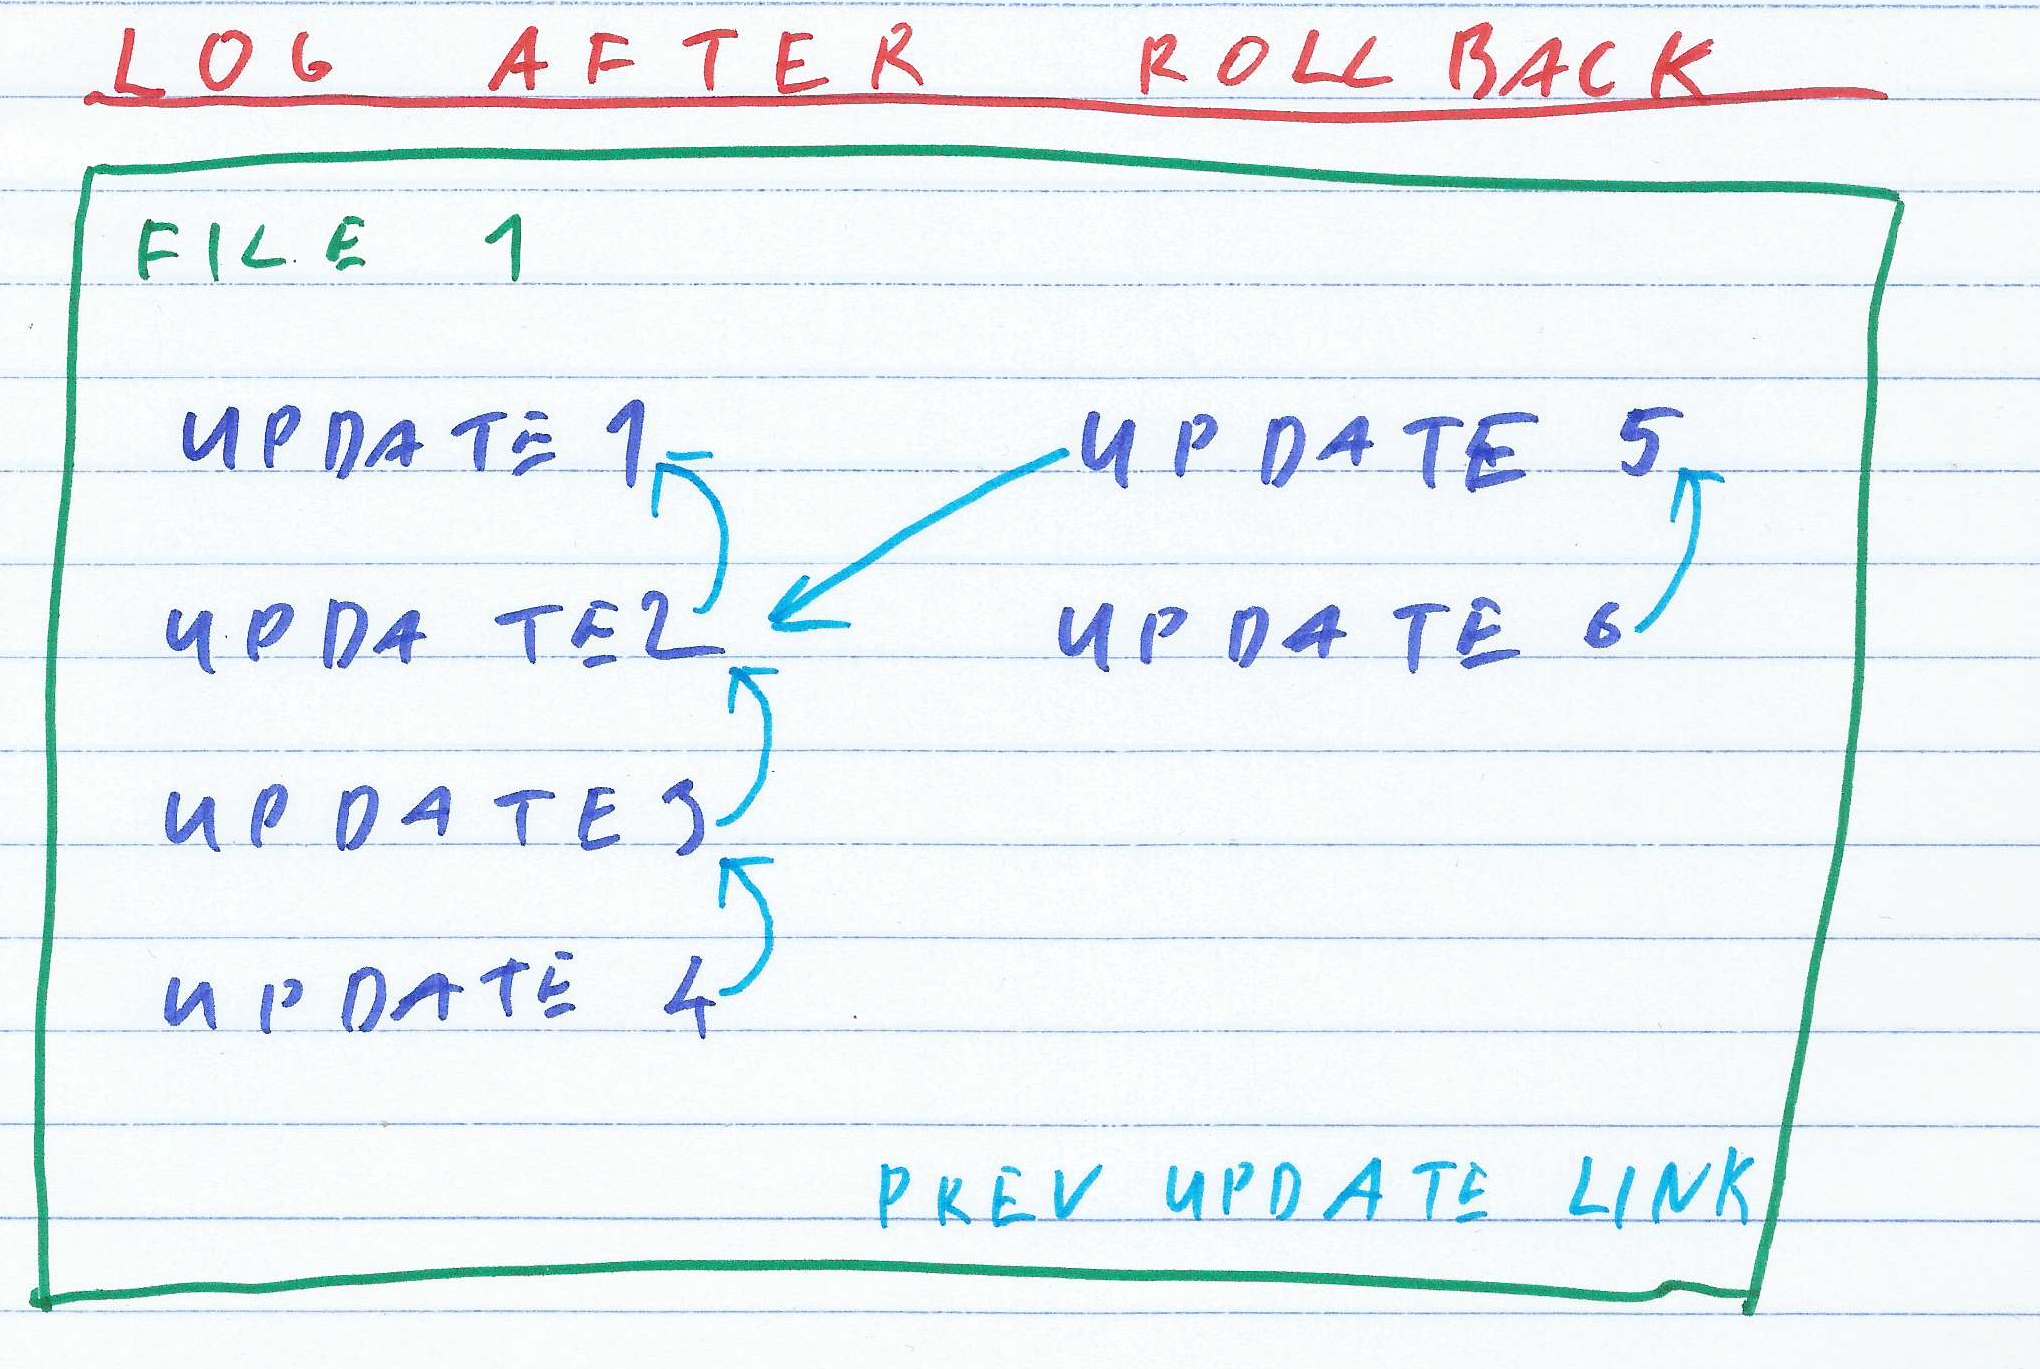 LOG AFTER ROLLBACK
FILE 1
UPDATE 1
UPDATE 2
UPDATE 3
UPDATE 4
UPDATE 5
UPDATE 6
PREV UPDATE LINK